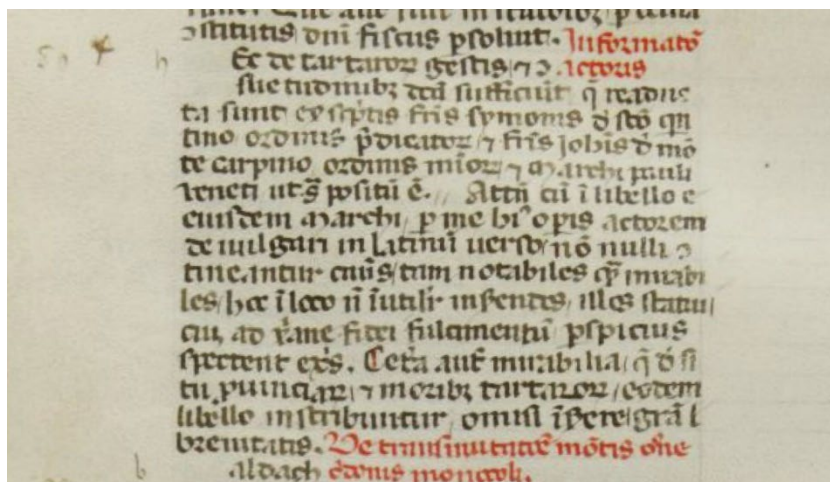 ↄstitutis dnī fiscus psoluit. Informatō
Ec de tartaroꝝ gestis ⁊ ↄ actoris
sue tudinibꝫ dcā sufficiūt q̄ reduc
ta sunt ex sc̄ptis fr̄is symonis d̄ scō qn
tino ordinis p̄dicatoꝝ ⁊ fr̄is iohīs d̄ mō
te carpino ordinis mīoꝝ ⁊ marchi pauli
veneti ut sͣ positū ē. Attn̄ cū ī libello e
eiusdem marchi p me hͥ oꝑis actorem
de uulgari in latinū uerso nō nulli ↄ
tineantur tam notabiles qꝫ mirabi
les hoc ī loco nō īutilr̄ inserentes illos statu
ad fidei fulcimentū pspicius
spectent Cetͣa aut̄ mirabilia q̄ d̄ si
tu ꝓuinciaꝝ ⁊ moribꝫ tartaroꝝ eodem
libello inscribuntur omisi īserere grā
breuitatis. De transmutatōe mōtis
aldach mongoli.